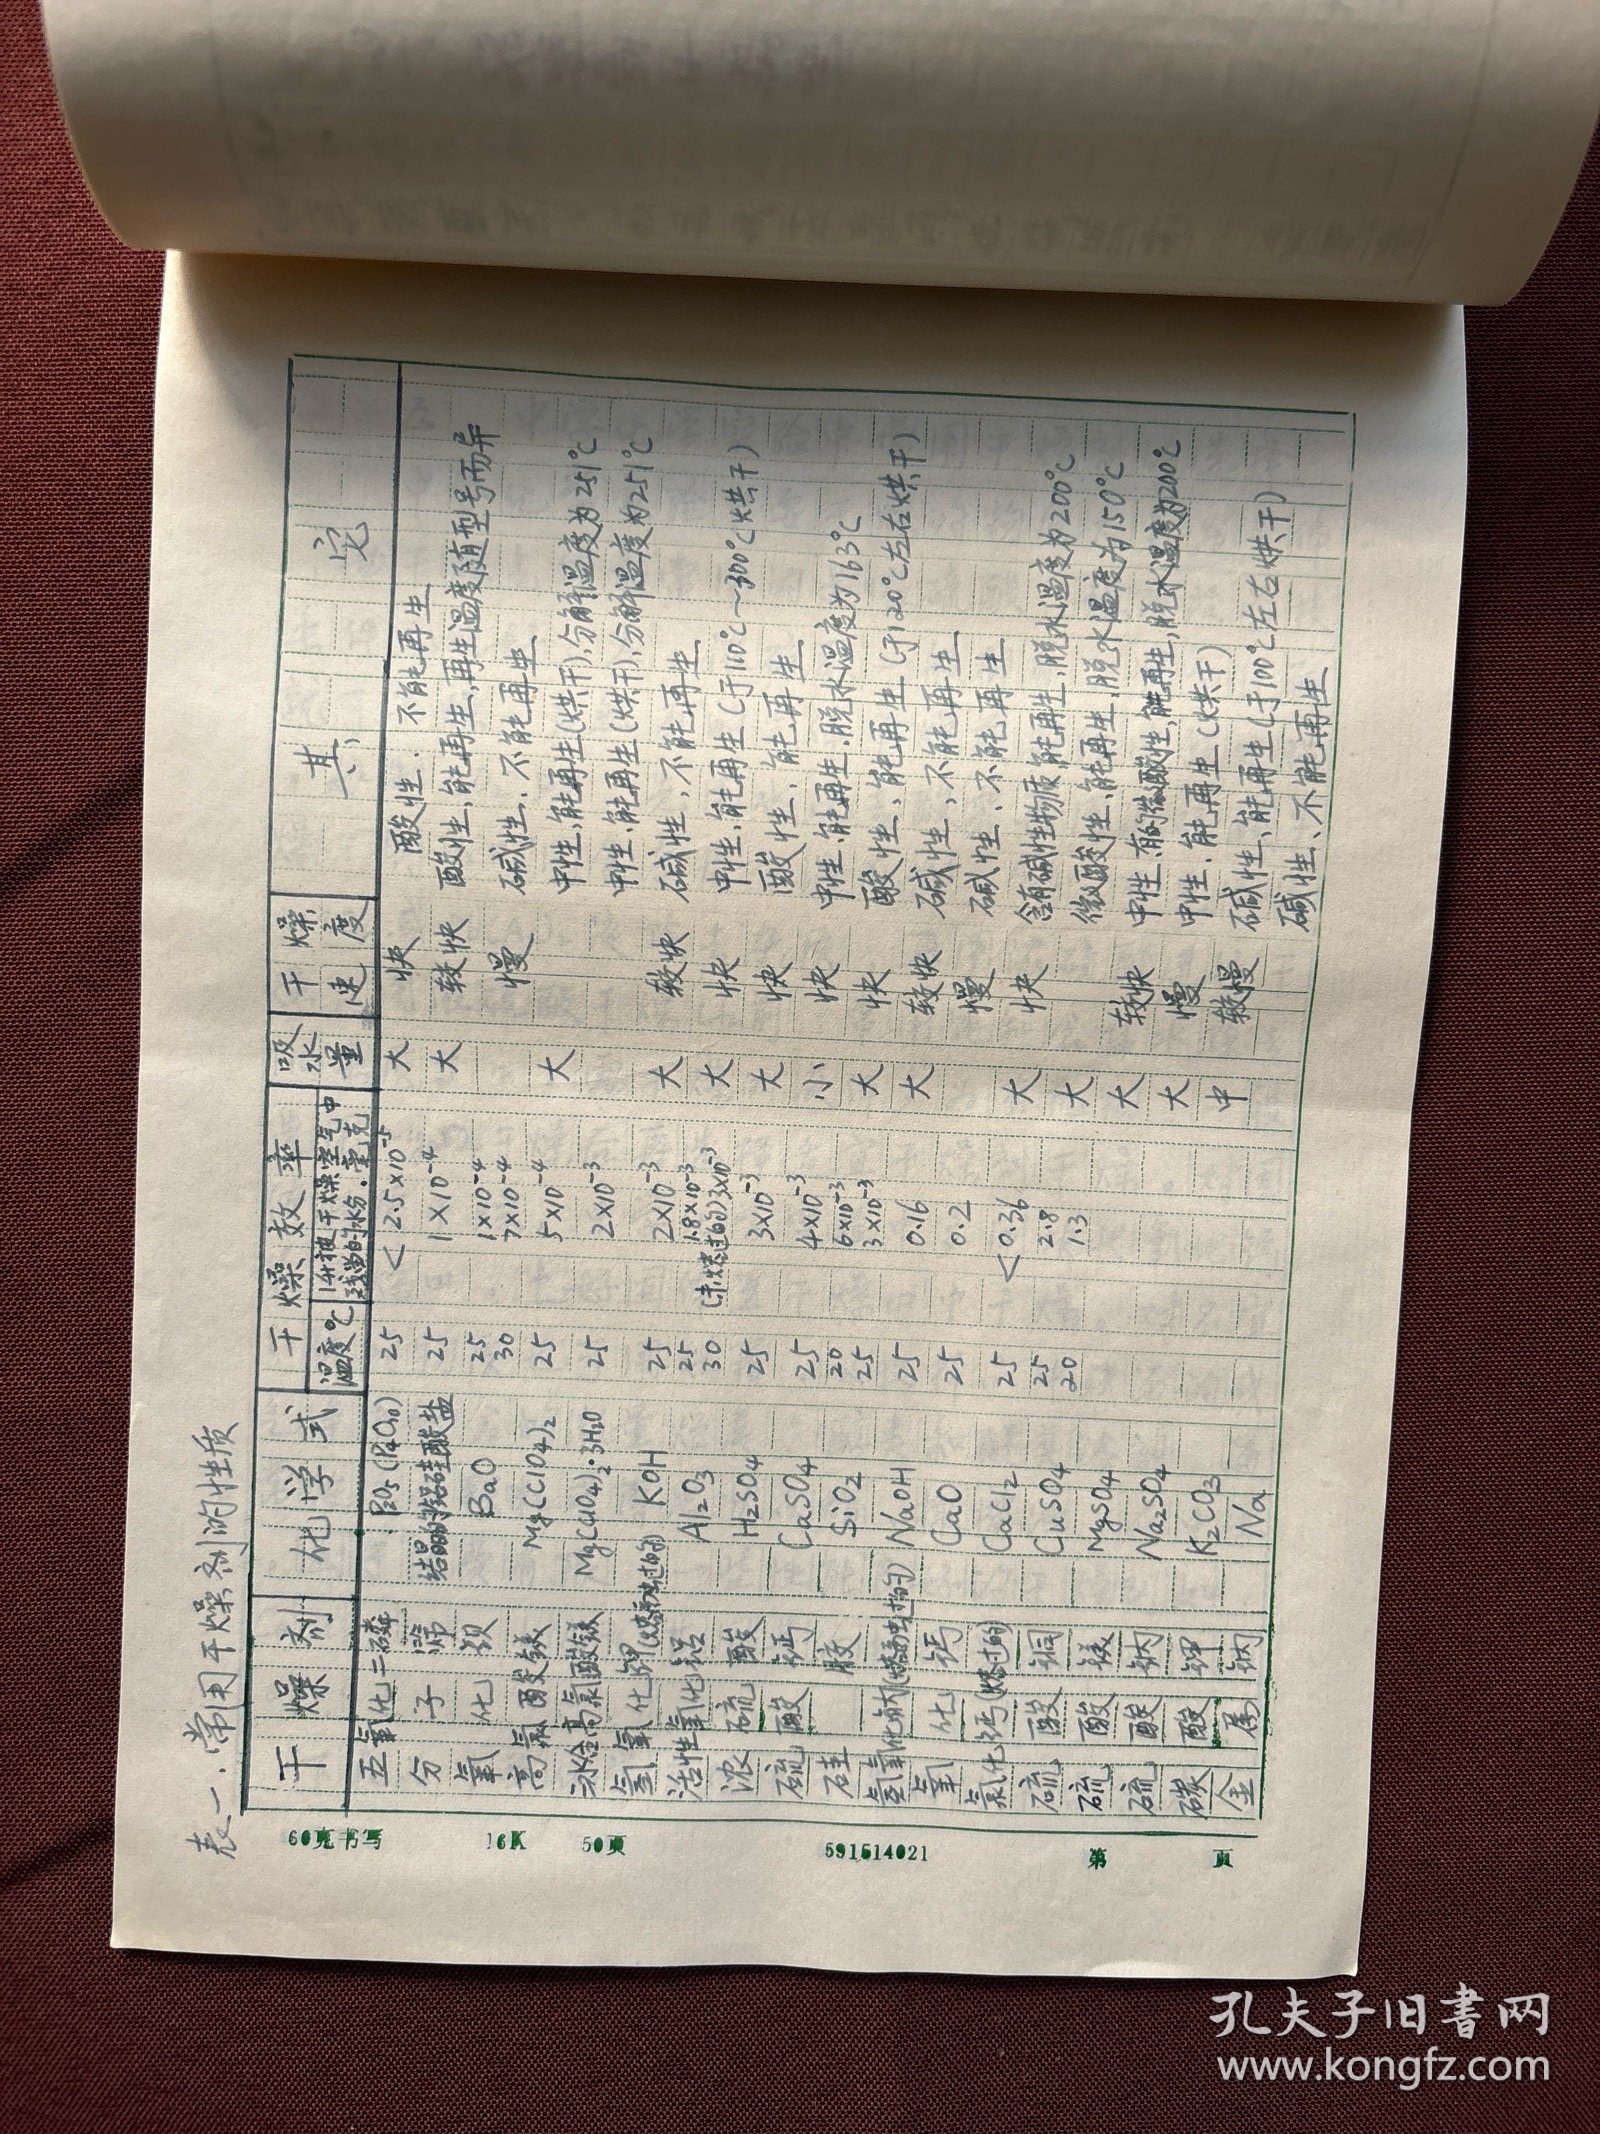 表一.常用干燥剂的性质
干燥剂 化学式 干燥效率 吸水量 干燥速度 其它
温度℃ 1升被干燥空气中残留的水分.毫克
五氧化二磷 P2O5(P4O10) 25 <2.5×10⁻⁵ 大 快 酸性.不能再生
分子筛 结晶的铝硅酸盐 25 1×10⁻⁴ 大 较快 酸性、能再生,再生温度随型号而异
氧化钡 BaO 25 1×10⁻⁴ 慢 碱性、不能再生
30 7×10⁻⁴
高氯酸镁 Mg(ClO4)2 25 5×10⁻⁴ 大 中性、能再生(烘干),分解温度为251℃
三水合高氯酸镁 Mg(ClO4)2·3H2O 25 2×10⁻³ 中性、能再生(烘干),分解温度为251℃
氢氧化钾(熔融过的) KOH 25 2×10⁻³ 大 较快 碱性,不能再生
活性氧化铝 Al2O3 25 1.8×10⁻³ 大 快 中性、能再生(于110℃~300℃烘干)
30 (未烧过的)3×10⁻³
浓硫酸 H2SO4 25 3×10⁻³ 大 快 酸性、能再生
硫酸钙 CaSO4 25 4×10⁻³ 小 快 中性、能再生.脱水温度为163℃
硅胶 SiO2 20 6×10⁻³ 大 快 酸性、能再生(于120℃左右烘干)
25 3×10⁻³
氢氧化钠(熔融过的) NaOH 25 0.16 大 较快 碱性,不能再生
氧化钙 CaO 25 0.2 慢 碱性、不能再生
氯化钙(熔过的) CaCl2 25 <0.36 大 快 含有碱性物质能再生,脱水温度为200℃
硫酸铜 CuSO4 25 2.8 大 微酸性、能再生,脱水温度为150℃
20 1.3
硫酸镁 MgSO4 大 较快 中性、有的微酸性,能再生,脱水温度为200℃
硫酸钠 Na2SO4 大 慢 中性、能再生(烘干)
碳酸钾 K2CO3 中 较慢 碱性、能再生(于100℃左右烘干)
金属钠 Na 碱性、不能再生
60克书写 16K 50页 591514021 第 页
孔夫子旧书网
www.kongfz.com